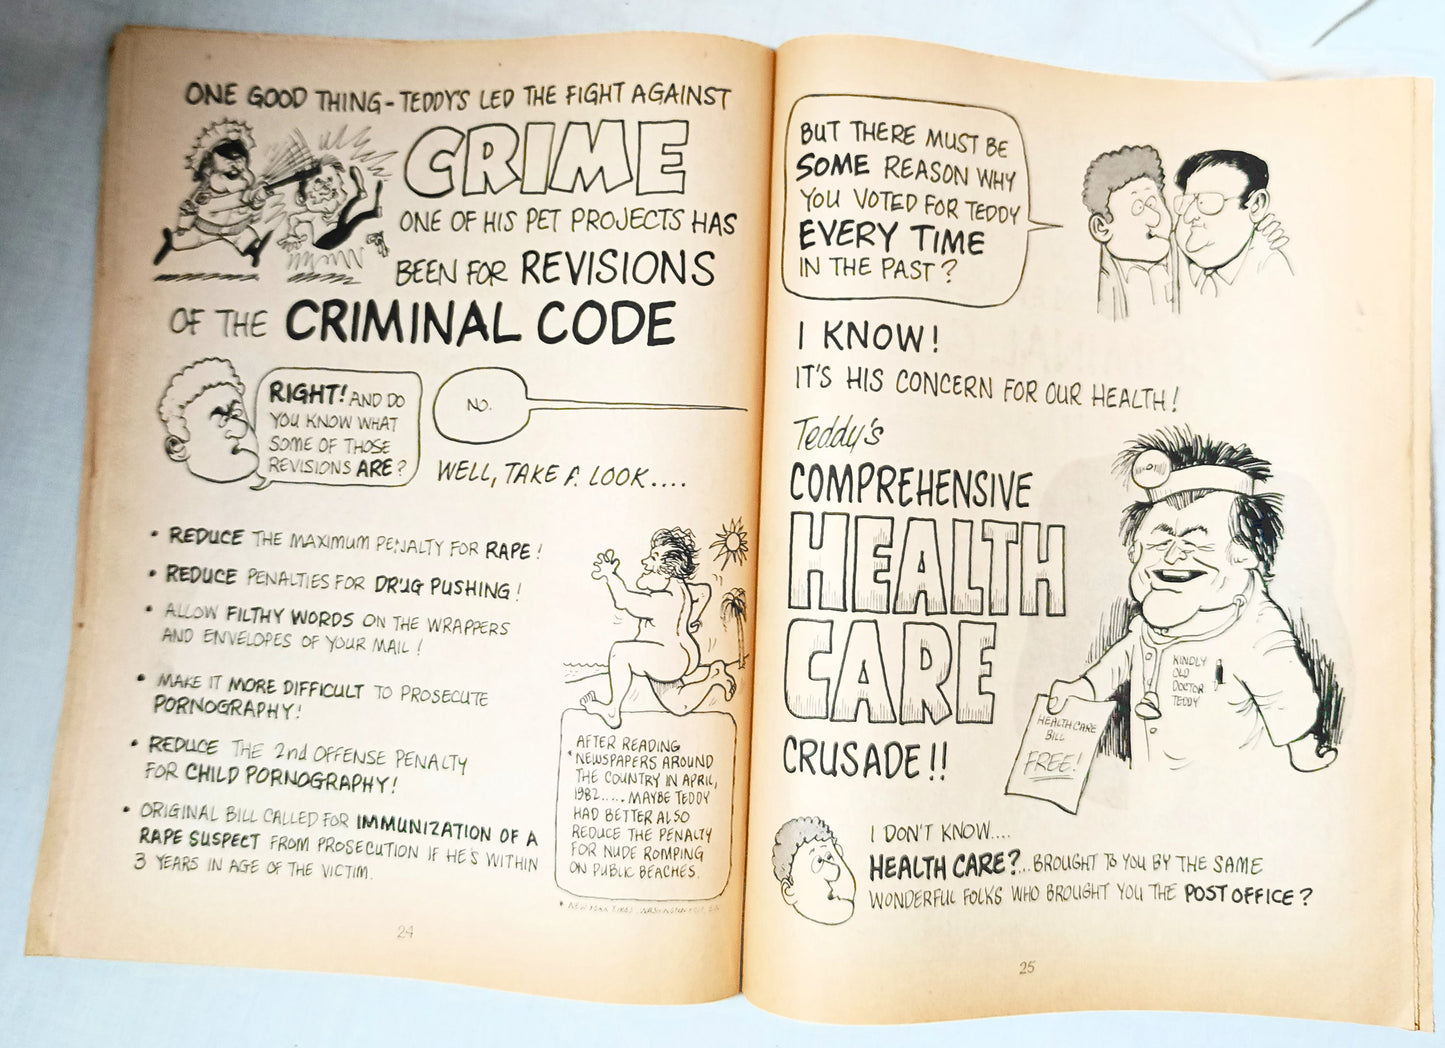 ONE GOOD THING - TEDDY'S LED THE FIGHT AGAINST
CRIME
ONE OF HIS PET PROJECTS HAS
BEEN FOR REVISIONS
OF THE CRIMINAL CODE
RIGHT! AND DO
YOU KNOW WHAT
SOME OF THOSE
REVISIONS ARE?
NO.
WELL, TAKE A LOOK....
• REDUCE THE MAXIMUM PENALTY FOR RAPE!
• REDUCE PENALTIES FOR DRUG PUSHING!
• ALLOW FILTHY WORDS ON THE WRAPPERS
AND ENVELOPES OF YOUR MAIL!
• MAKE IT MORE DIFFICULT TO PROSECUTE
PORNOGRAPHY!
• REDUCE THE 2nd OFFENSE PENALTY
FOR CHILD PORNOGRAPHY!
• ORIGINAL BILL CALLED FOR IMMUNIZATION OF A
RAPE SUSPECT FROM PROSECUTION IF HE'S WITHIN
3 YEARS IN AGE OF THE VICTIM.
AFTER READING
* NEWSPAPERS AROUND
THE COUNTRY IN APRIL,
1982..... MAYBE TEDDY
HAD BETTER ALSO
REDUCE THE PENALTY
FOR NUDE ROMPING
ON PUBLIC BEACHES.
* NEW YORK TIMES, WASHINGTON POST,
24
BUT THERE MUST BE
SOME REASON WHY
YOU VOTED FOR TEDDY
EVERY TIME
IN THE PAST?
I KNOW!
IT'S HIS CONCERN FOR OUR HEALTH!
Teddy's
COMPREHENSIVE
HEALTH
CARE
CRUSADE!!
KINDLY
OLD
DOCTOR
TEDDY
HEALTH CARE
BILL
FREE!
I DON'T KNOW....
HEALTH CARE?...BROUGHT TO YOU BY THE SAME
WONDERFUL FOLKS WHO BROUGHT YOU THE POST OFFICE?
25